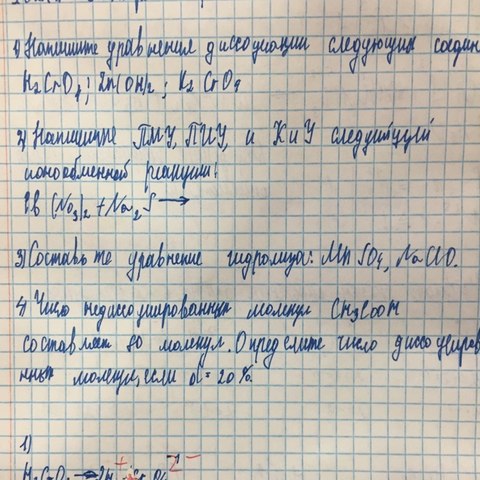 1) Напишите уравнения диссоциации следующих соедин
H2CrO4; Zn(OH)2; K2CrO4
2) Напишите ПМУ, ПИУ, и КИУ следующей
ионообменной реакции:
(NO3)2 + Na2S →
3) Составьте уравнение гидролиза: MnSO4, NaClO.
4) Число недиссоциированных молекул CH3COOH
составляет 80 молекул. Определите число диссоцииров
нных молекул, если α = 20%.
1)